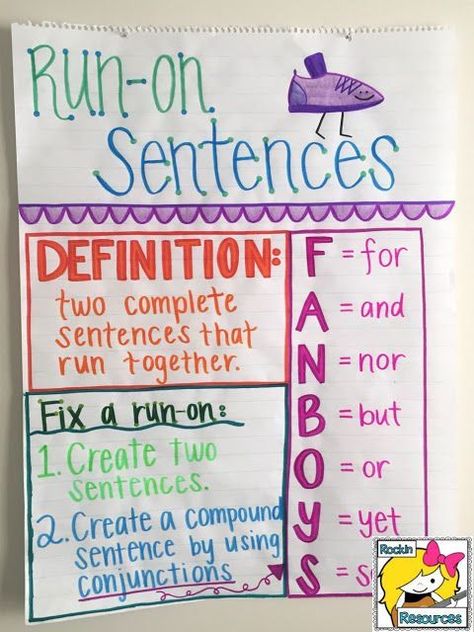 Run-on
Sentences
DEFINITION:
two complete
sentences that
run together.
Fix a run-on:
1. Create two
sentences.
2. Create a compound
sentence by using
conjunctions
F = for
A = and
N = nor
B = but
O = or
Y = yet
S =
Rockin
Resources